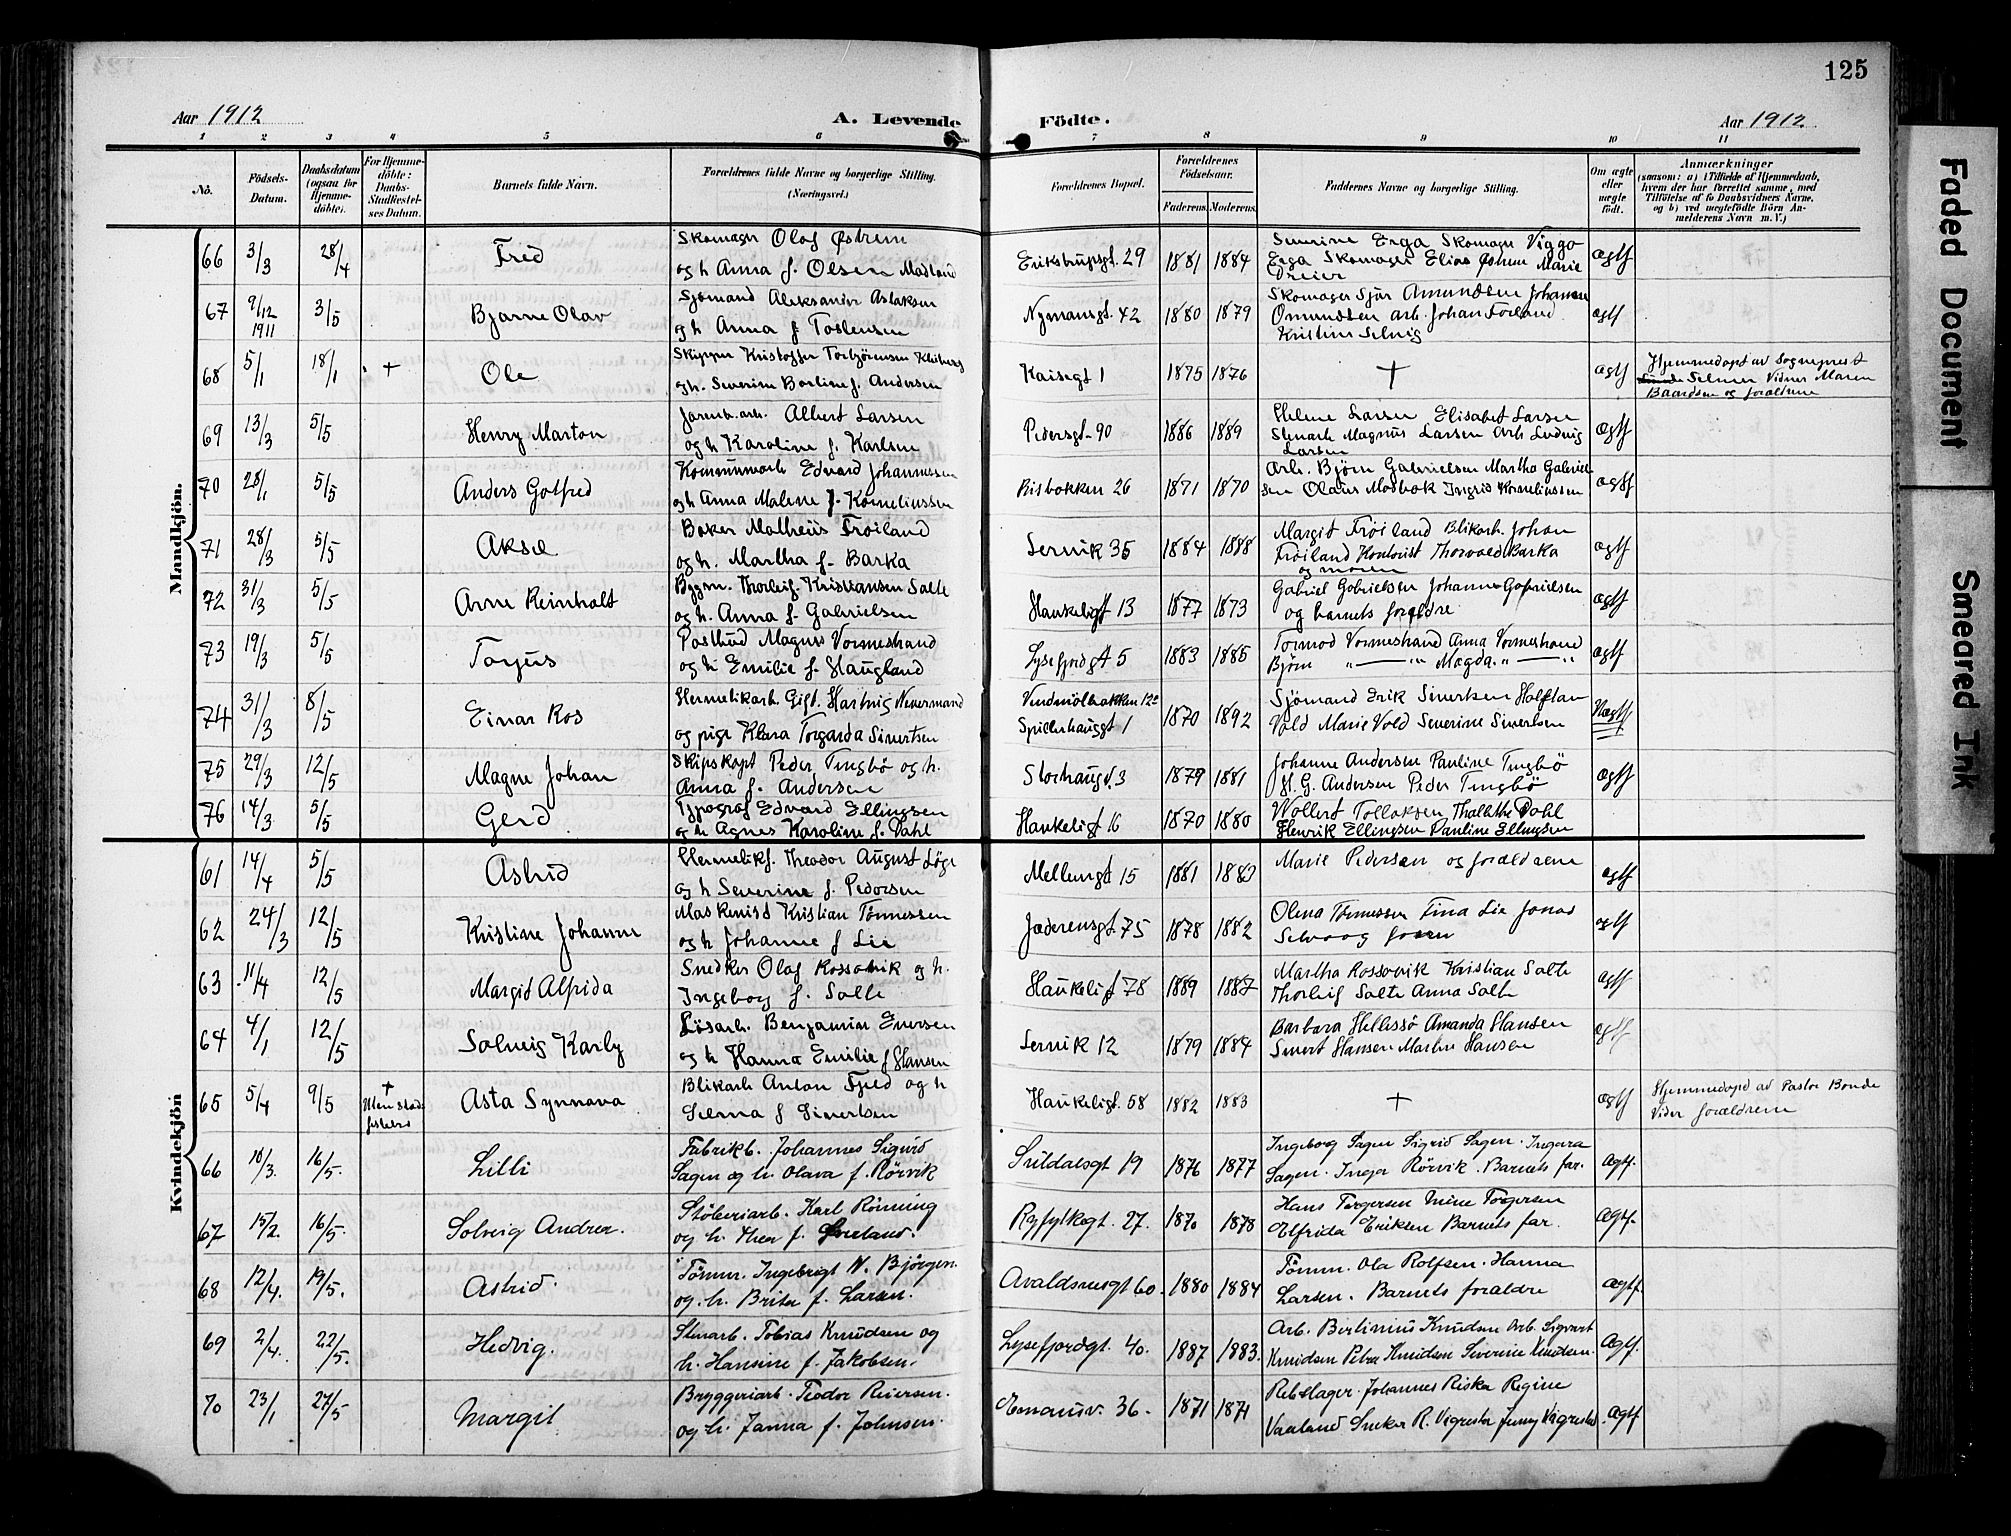 125
Aar 1912
A. Levende Födte.
Aar 1912
1 2 3 4 5 6 7 8 9 10 11
No.
Födsels-Datum.
Daabsdatum (ogsaa for Hjemme-döbte).
For Hjemme-döbte: Daabs-Stadfæstel-ses Datum.
Barnets fulde Navn.
Forældrenes fulde Navne og borgerlige Stilling. (Næringsvei.)
Forældrenes Bopæl.
Forældrenes Födselsaar.
Faderens. Moderens.
Faddernes Navne og borgerlige Stilling.
Om ægte eller uægte födt.
Anmærkninger
(saasom: a) i Tilfælde af Hjemmedaab, hvem der har forrettet samme, med Tilföielse af to Daabsvidners Navne, og b) ved uægtefödte Börn An-melderens Navn m. V.)
Mandkjön.
66 3/3 28/4 Fred
Skomager Olaf Østrem
og h Anna f. Olsen Masland
Erikstrupsgt. 29 1881 1884
Severine Erga Skomager Viggo
Erga Skomager Elias Østrem Marie
Dreier
ægtf
67 9/12 1911 3/5 Bjarne Olav
Sjömand Aleksander Aslaksen
og h Anna f Tostensen
Nymansgt. 42 1880 1879
Skomager Sjur Amundsen Johanna
Omundsen arb. Johan Forland
Kristine Selvig
ægtf
68 5/1 18/1 + Ole
Skipper Kristoffer Torbjörnsen
og h. Severine Bertine f. Andersen
Kaisegt 1 1875 1876 +
ægtf
Hjemmedøpt av Sogneprest
Selmer Vidner Maren
Baardsen og forældrene
69 13/3 5/5 Henry Marton
Jernb.arb. Albert Larsen
og h Karoline f. Karlsen
Pedersgt. 90 1886 1889
Helene Larsen Elisabet Larsen
Stenarb Magnus Larsen Arb Ludvig
Larsen
ægtf
70 28/1 5/5 Anders Gotfred
Kommunearb Edvard Johannessen
og h Anna Malene f. Korneliussen
Risbakken 26 1871 1870
Arb. Björn Gabrielsen Martha Gabriel
sen Olaus Modbak Ingrid Korneliussen
ægtf
71 28/3 5/5 Aksel
Baker Matheus Frøiland
og h. Martha f. Barka
Lervik 35 1884 1888
Margit Frøiland Blikarb. Johan
Frøiland Kontorist Thorvald Barka
og moren
ægtf
72 31/3 5/5 Arne Reinholt
Bygm. Thorleif Kristiansen Salte
og h. Anna f. Gabrielsen
Haukeligt 13 1877 1873
Gabriel Gabrielsen Johanne Gabrielsen
og barnets forældre
ægtf
73 19/3 5/5 Torjus
Postbud Magnus Vormestrand
og h Emilie f. Haugland
Lysefjordgt 5 1883 1885
Tormod Vormestrand Anna Vormestrand
Björn " — " Magda " — "
ægtf
74 31/3 8/5 Einar Ros
Hermetikarb. Gift. Hartvig Nevermand
og pige Klara Torgarda Sivertsen
Vindmöllebakken 12c
Spillerhauggt 1 1870 1892
Sjømand Erik Sivertsen Halfdan
Vold Marie Vold Severine Sivertsen
Uægtf
75 29/3 12/5 Magne Johan
Skipskapt Peder Tungbö og h.
Anna f. Andersen
Storhaugt. 3 1879 1881
Johanne Andersen Pauline Tungbö
H. G. Andersen Peder Tungbö
ægtf
76 14/3 5/5 Gerd
Typograf Edvard Ellingsen
og h Agnes Karoline f. Dahl
Haukeligt 16 1870 1880
Wollert Tollaksen Thalethe Dahl
Henrik Ellingsen Pauline Ellingsen
Kvindekjön
61 14/4 5/5 Astrid
Hermetikf. Theodor August Löge
og h Severine f. Pedersen
Mellemgt 15 1881 1883
Marie Pedersen og forældrene
ægtf
62 24/3 12/5 Kristine Johanne
Maskinist Kristian Tönnessen
og h Johanne f Lie
Jæderensgt. 75 1878 1882
Olena Tönnessen Tina Lie Jonas
Selvaag
ægtf
63 11/4 12/5 Margit Alfrida
Snedker Olaf Rossavik og h.
Ingeborg f. Salte
Haukeligt 78 1889 1887
Martha Rossavik Kristian Salte
Thorleif Salte Anna Salte
ægtf
64 4/1 12/5 Solveig Karly
Lösarb. Benjamin Evensen
og h Hanna Emilie f Hansen
Lervik 12 1879 1884
Barbara Hellessö Amanda Hansen
Sivert Hansen Martin Hansen
ægtf
65 5/4 9/5 + Uten stadfestelse Asta Synnøva
Blikarb Anton Fjeld og h
Selma f Sivertsen
Haukeligt. 58 1882 1883 +
ægtf
Hjemmedøpt av Pastor Bonde
Vidner forældrene
66 10/3. 16/5. Lilli
Fabrikb. Johannes Sigurd
Sagen og h. Olava f. Rörvik
Suldalsgt 19 1876 1877
Ingeborg Sagen Sigrid Sagen. Ingvara
Sagen. Inga Rörvik. Barnets far.
ægtf.
67 15/2. 16/5. Solveig Andrea.
Stöberiarb. Karl Rönning
og h. Thea f.
Ryfylkegt. 27. 1870 1878
Hans Torgersen Mine Torgersen
Elfrida Eriksen Barnets far.
ægtf.
68 12/4. 19/5. Astrid.
Tömm. Ingebrigt N. Björgen.
og h. Brita f. Larsen.
Avaldsnesgt 60. 1880 1884
Tömm. Ola Rolfsen. Hanna
Larsen. Barnets forældre
ægtf.
69 2/4. 22/5. Hedvig.
Stenarb. Tobias Knudsen og
h. Hansine f. Jakobsen.
Lysefjordgt. 40. 1887 1883.
Arb. Bertinius Knudsen Arb. Sigvart
Knudsen Petra Knudsen Severine Knudsen.
ægtf.
70 23/1 27/5 Margit
Bryggeriarb. Teodor Reiersen.
og h. Janna f. Johnsen.
Emausv. 36. 1871 1871
Rebslager. Johannes Riska Regine
Vaaland Sneker R. Vigrestad Jenny Vigrestad.
ægtf
Faded Document
Smeared Ink